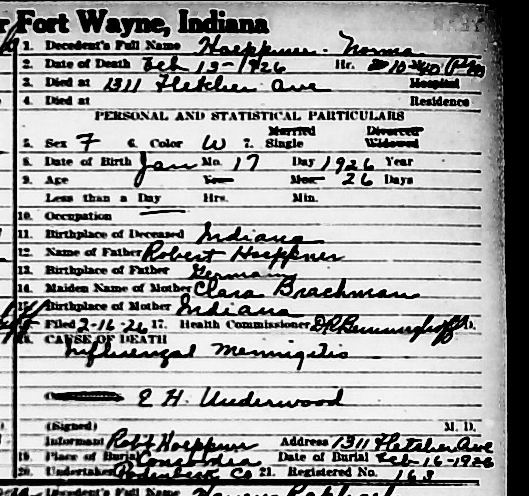 Fort Wayne, Indiana
1. Decedent's Full Name Hoeppner - Norma
2. Date of Death Feb 13-1926 Hr. 10-40 (P.M)
3. Died at 1311 Fletcher Ave Hospital
4. Died at Residence
PERSONAL AND STATISTICAL PARTICULARS
Married Divorced
5. Sex F 6. Color W 7. Single Widowed
8. Date of Birth Jan Mo. 17 Day 1926 Year
9. Age Yrs. Mos. 26 Days
Less than a Day Hrs. Min.
10. Occupation
11. Birthplace of Deceased Indiana
12. Name of Father Robert Hoeppner
13. Birthplace of Father Germany
14. Maiden Name of Mother Clara Brachman
15. Birthplace of Mother Indiana
16. Filed 2-16-26 17. Health Commissioner
18. CAUSE OF DEATH
Influenzal Meningitis
E H. Underwood
(Signed) M. D.
Informant Robt Hoeppner Address 1311 Fletcher Ave
19. Place of Burial Concordia Date of Burial Feb 16-1926
20. Undertaker Co 21. Registered No. 163
Decedent's Full Name